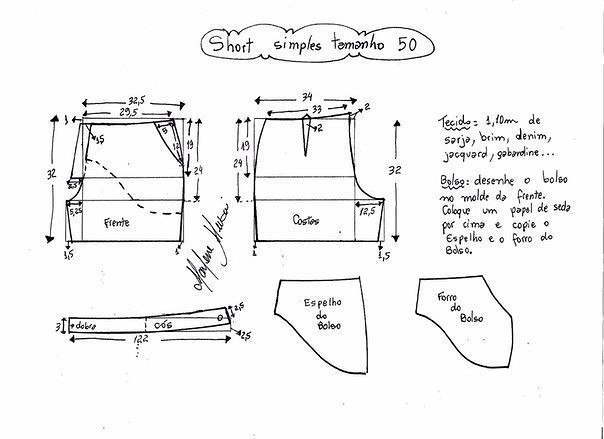 Short simples tamanho 50
32,5
29,5
1
1,5
5
12
19
24
32
5,25
Frente
1,5
1
34
33
2
2
19
24
32
12,5
Costas
1
1,5
Tecido: 1,10m de
sarja, brim, denim,
jacquard, gabardine...
Bolso: desenhe o bolso
no molde da frente.
Coloque um papel de seda
por cima e copie o
Espelho e o forro do
Bolso.
3
dobra
cós
122
2,5
2,5
Espelho
do
Bolso
Forro
do
Bolso